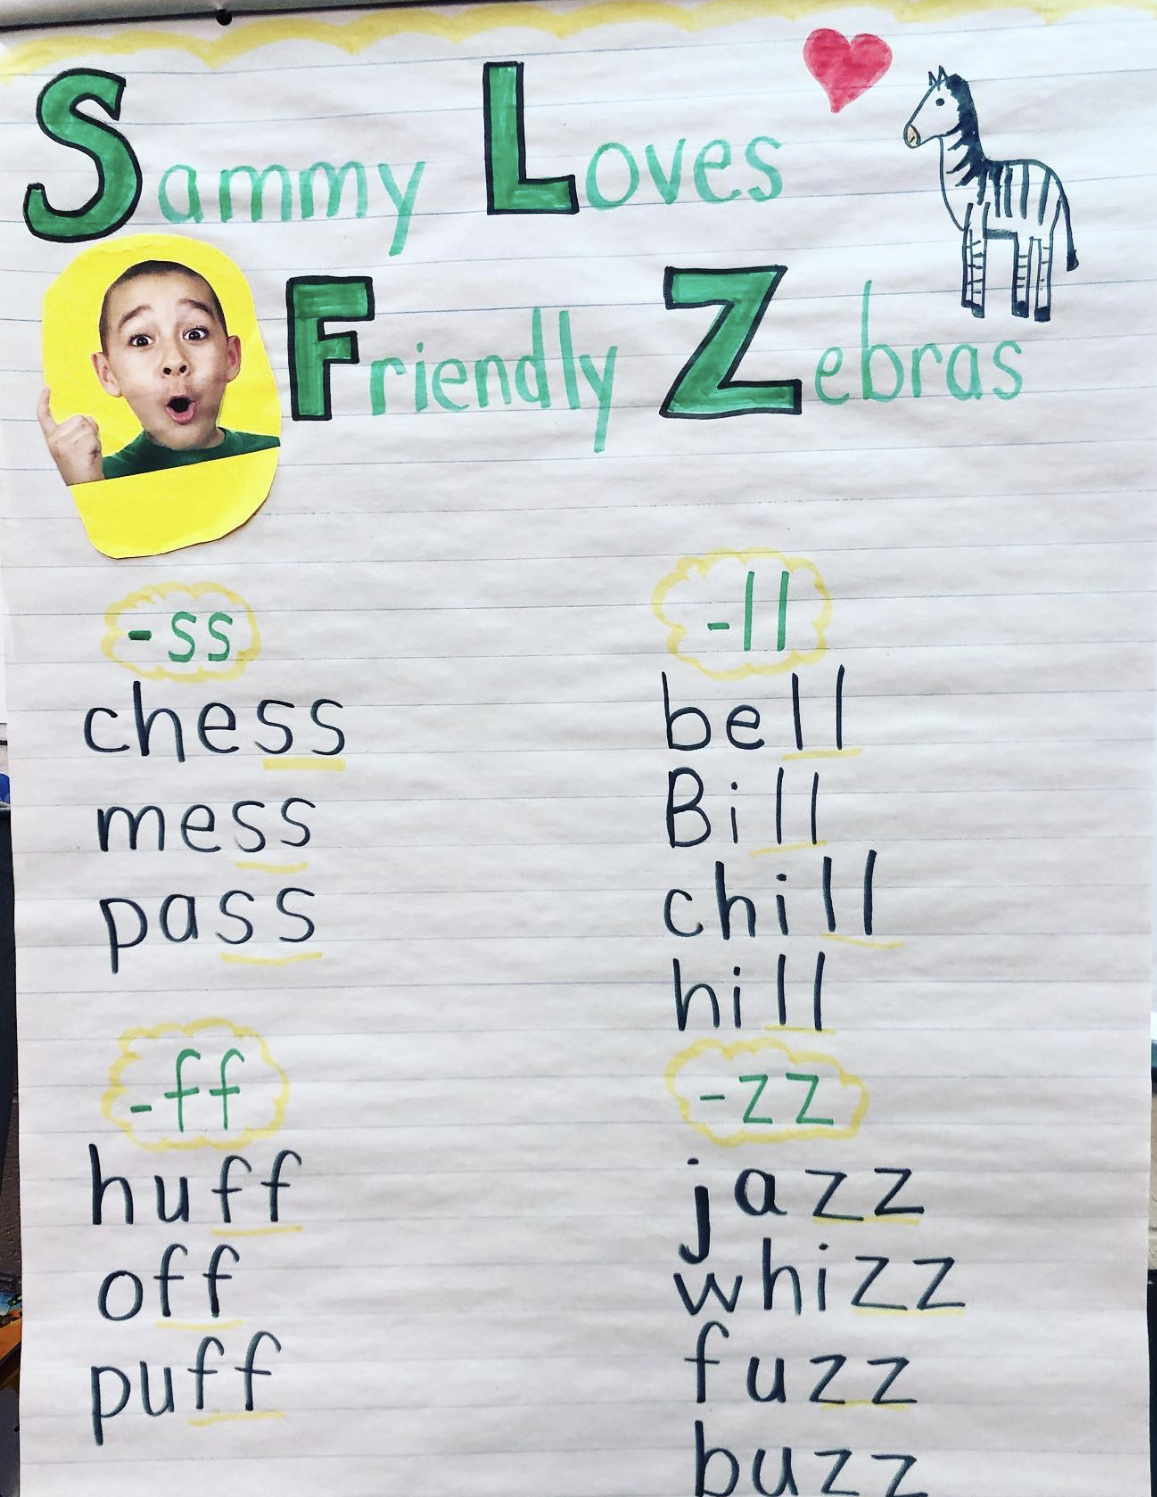 Sammy Loves
Friendly Zebras
-ss
chess
mess
pass
-ll
bell
Bill
chill
hill
-ff
huff
off
puff
-zz
jazz
whizz
fuzz
buzz